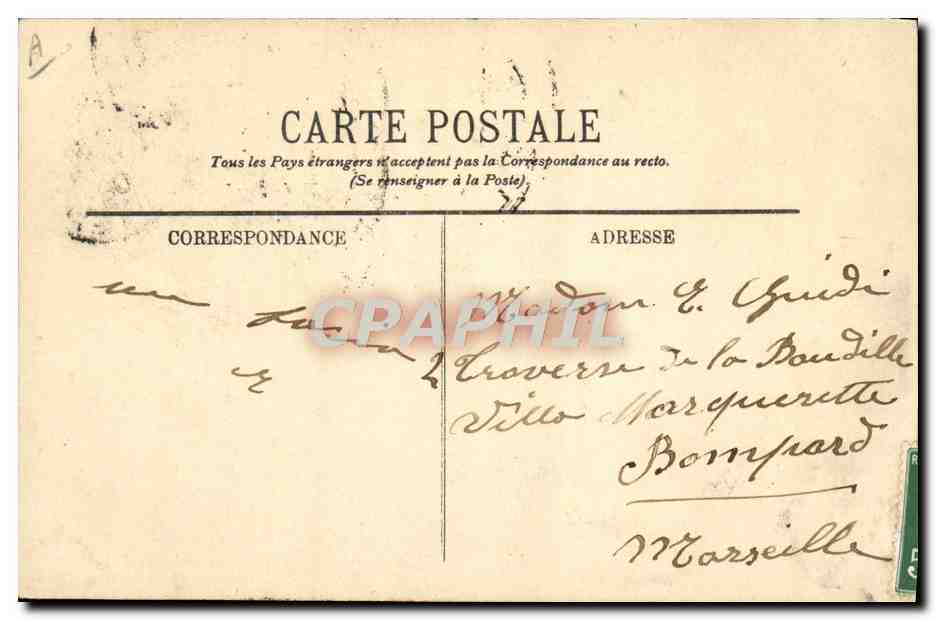 A
CARTE POSTALE
Tous les Pays étrangers n'acceptent pas la Correspondance au recto.
(Se renseigner à la Poste).
CORRESPONDANCE
ADRESSE
CPAPHIL
un
E
Madom E. Guidi
2 Traverse de la Baudille
Villa Marguerette
Bompard
Marseille
5